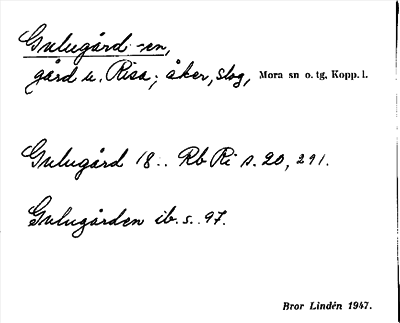 Gulugård -en,
gård u. Risa; åker, slog, Mora sn o. tg, Kopp. l.
Gulugård 18.. Rb Ri s. 20, 291.
Gulugården ib. s. 97.
Bror Lindén 1947.